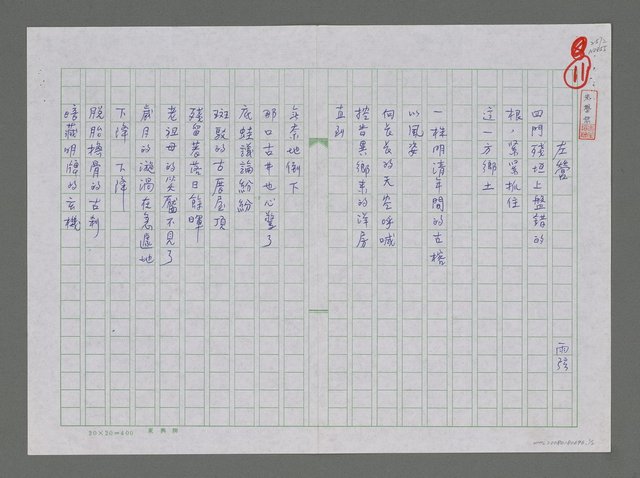 左營
雨弦
四門殘垣上盤錯的
根，緊緊抓住
這一方鄉土
一株明清年間的古榕
以風姿
向長長的天空呼喊
控告異鄉來的洋房
直到
無奈地倒下
那口古井也心驚了
底蛙議論紛紛
斑駁的古厝屋頂
殘留著落日餘暉
老祖母的笑靨不見了
歲月的漩渦在急遽地
下降 下降
脫胎換骨的古剎
暗藏明牌的玄機
20×20=400
11